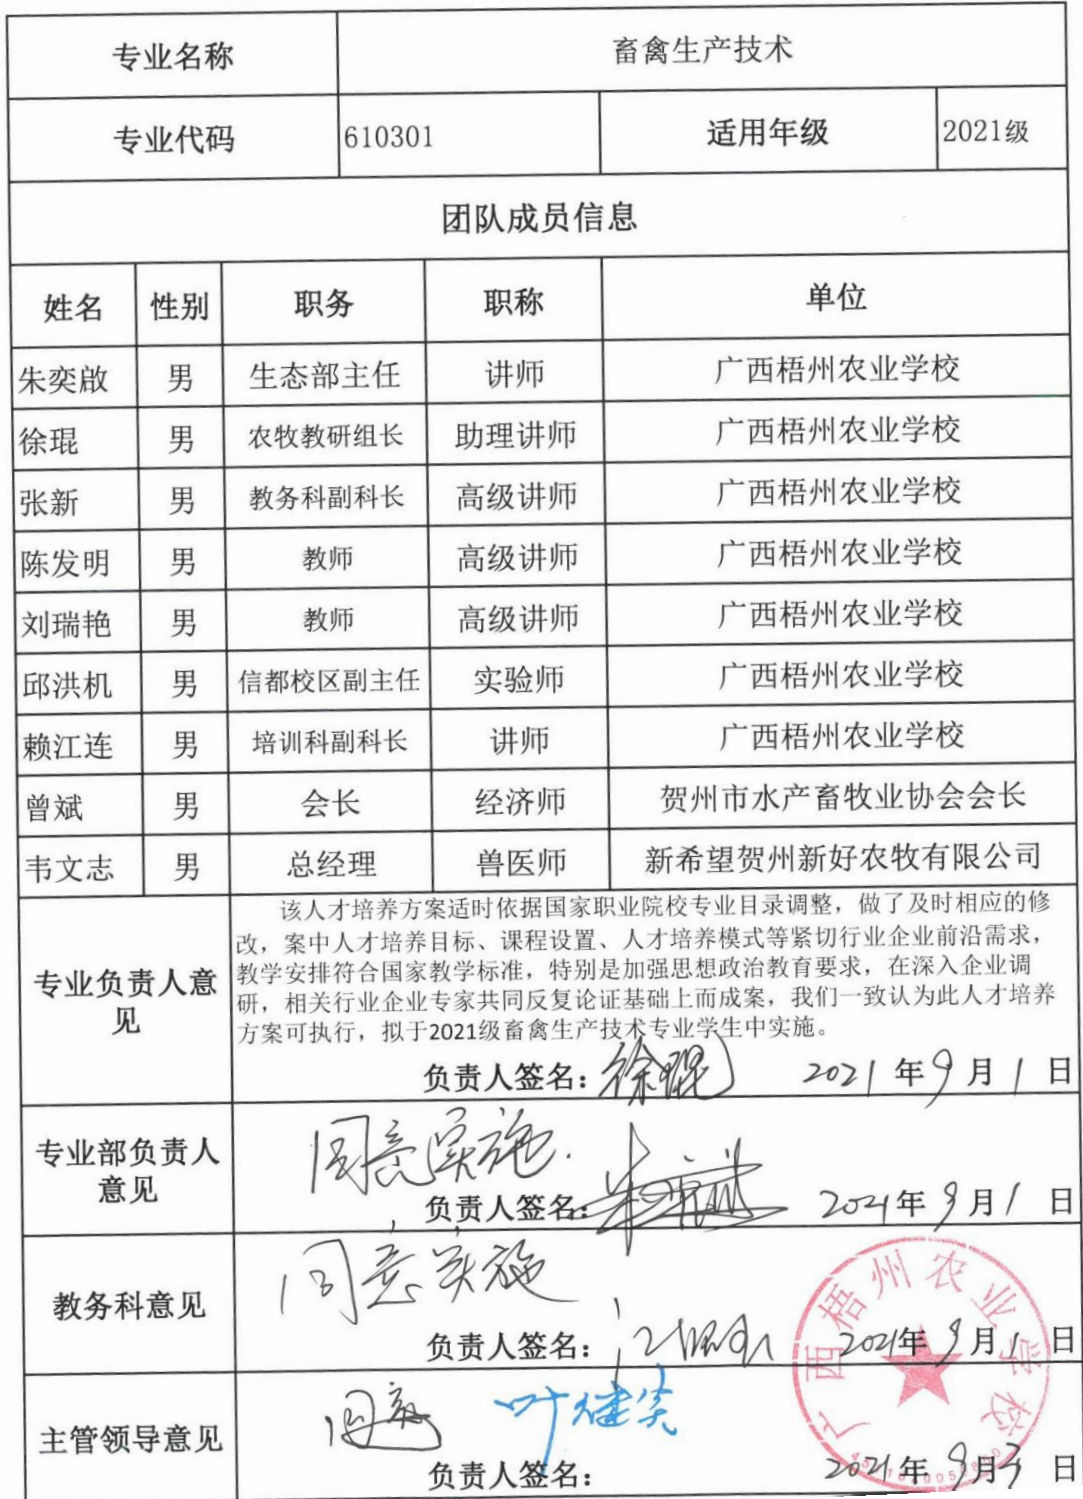 专业名称 畜禽生产技术
专业代码 610301 适用年级 2021级
团队成员信息
姓名 性别 职务 职称 单位
朱奕啟 男 生态部主任 讲师 广西梧州农业学校
徐琨 男 农牧教研组长 助理讲师 广西梧州农业学校
张新 男 教务科副科长 高级讲师 广西梧州农业学校
陈发明 男 教师 高级讲师 广西梧州农业学校
刘瑞艳 男 教师 高级讲师 广西梧州农业学校
邱洪机 男 信都校区副主任 实验师 广西梧州农业学校
赖江连 男 培训科副科长 讲师 广西梧州农业学校
曾斌 男 会长 经济师 贺州市水产畜牧业协会会长
韦文志 男 总经理 兽医师 新希望贺州新好农牧有限公司
专业负责人意见
该人才培养方案适时依据国家职业院校专业目录调整，做了及时相应的修
改，案中人才培养目标、课程设置、人才培养模式等紧切行业企业前沿需求，
教学安排符合国家教学标准，特别是加强思想政治教育要求，在深入企业调
研，相关行业企业专家共同反复论证基础上而成案，我们一致认为此人才培养
方案可执行，拟于2021级畜禽生产技术专业学生中实施。
负责人签名：徐琨 2021年9月1日
专业部负责人意见
同意实施.
负责人签名： 2021年9月1日
教务科意见
同意实施
负责人签名： 2021年9月1日
主管领导意见
同意 叶继炎
负责人签名： 2021年9月3日
广西梧州农业学校